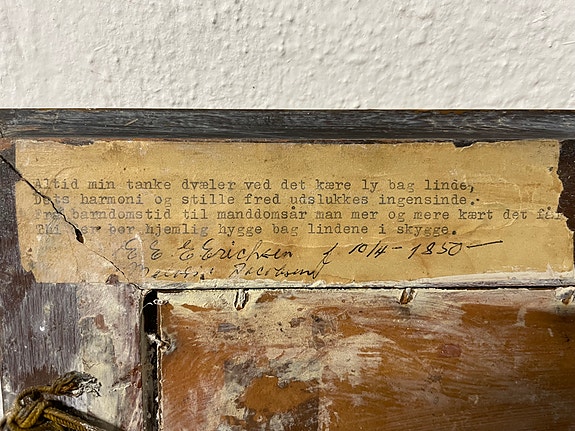 Altid min tanke dvæler ved det kære ly bag linde,
Dets harmoni og stille fred udslukkes ingensinde.
Fra barndomstid til manddomsår man mer og mere kært det får
Thi der bor hjemlig hygge bag lindene i skygge.
E. E. E. Erichsen f 10/4 - 1850 -
Jacobsen